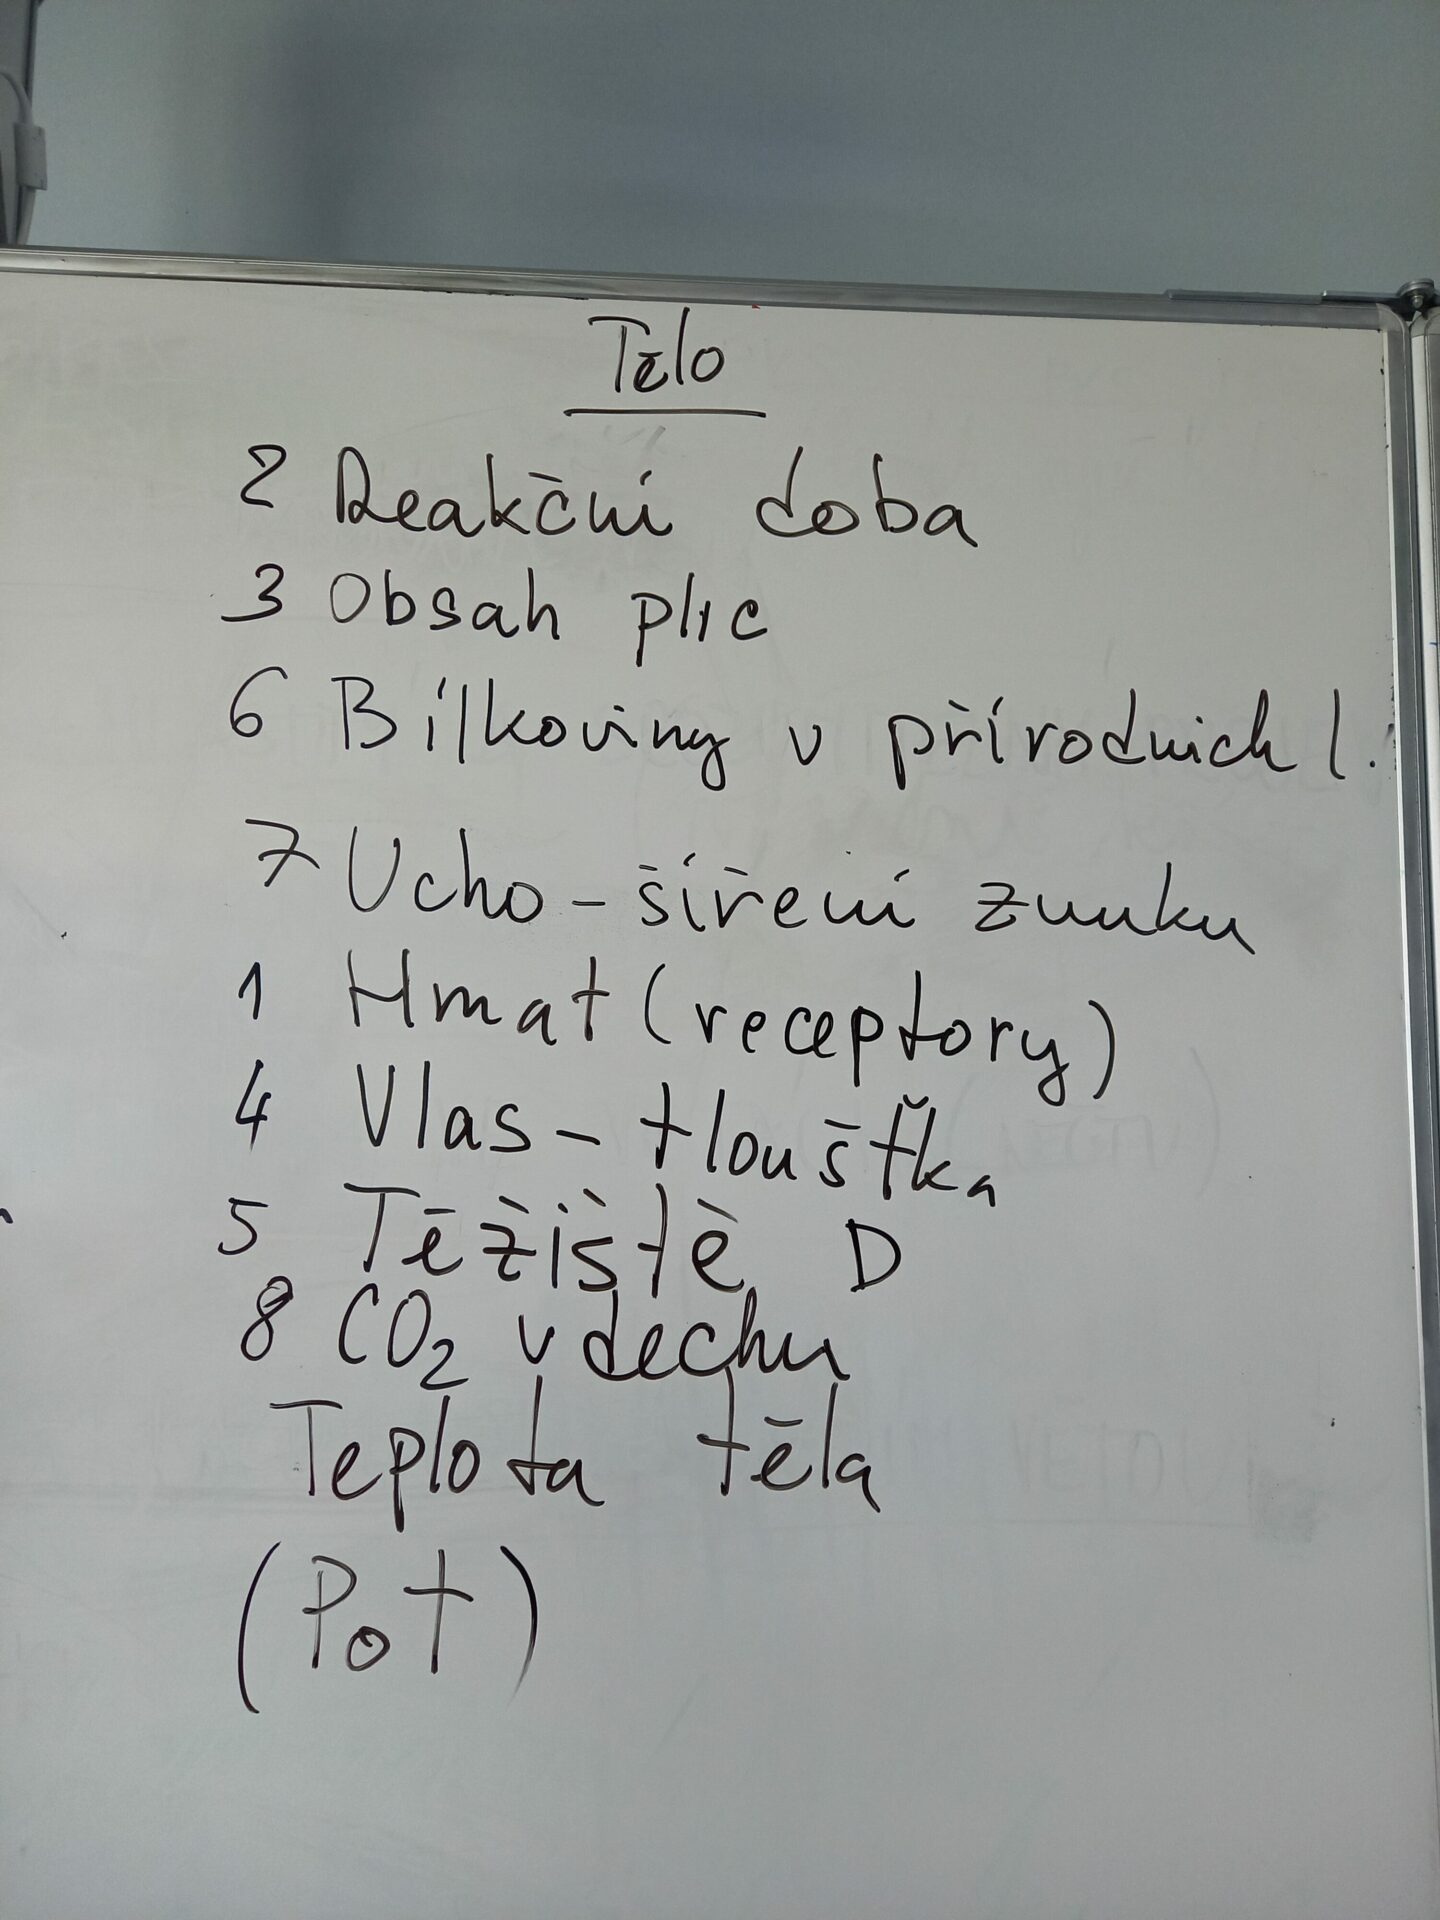 Tělo
2 Reakční doba
3 Obsah plic
6 Bílkoviny v přírodních l.
7 Ucho - šíření zvuku
1 Hmat (receptory)
4 Vlas - tloušťka
5 Těžiště D
8 CO₂ v dechu
Teplota těla
(Pot)